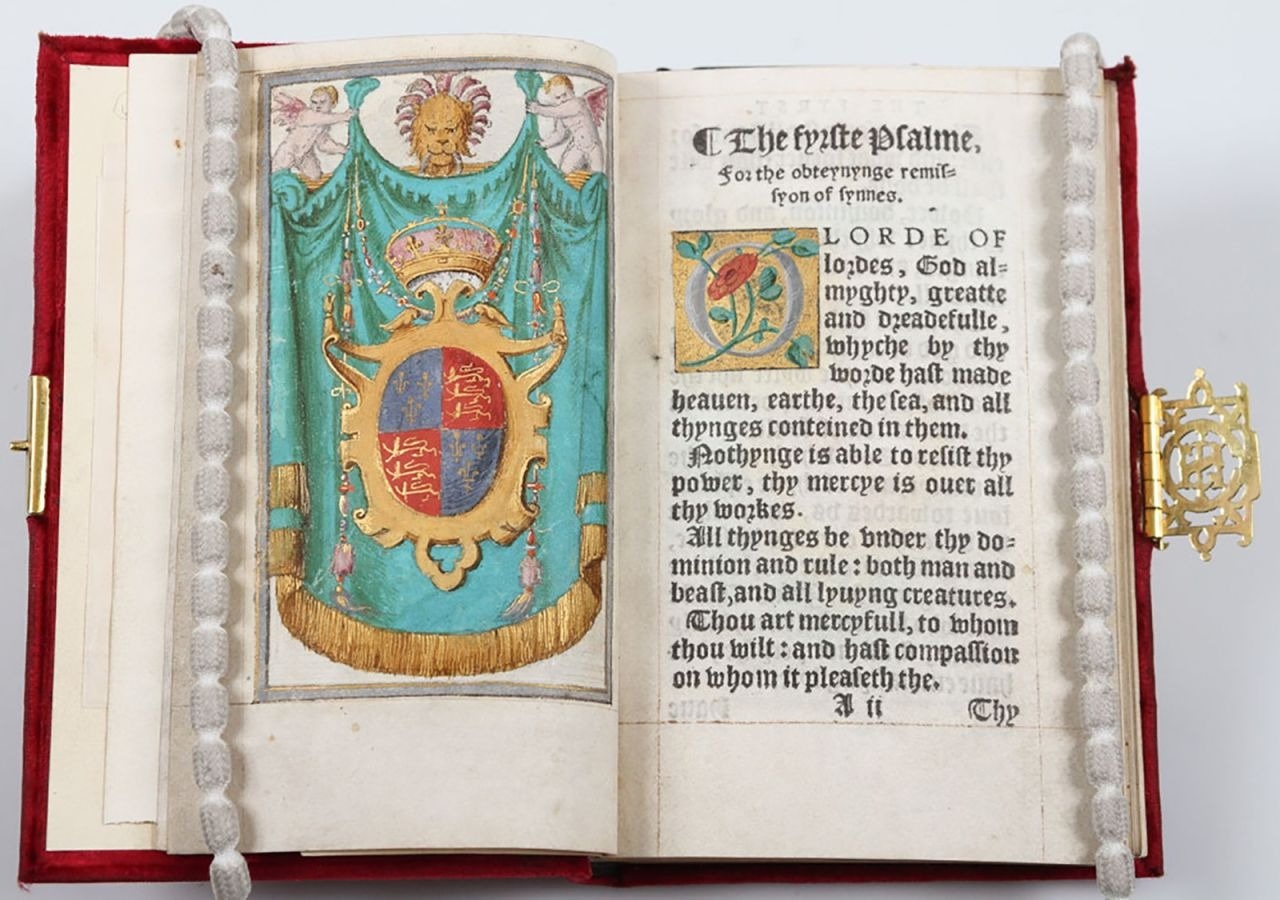 ¶ The fyrste Psalme,
For the obteynynge remis=
syon of synnes.
O LORDE OF
lordes, God al=
myghty, greatte
and dreadefulle,
whyche by thy
worde hast made
heauen, earthe, the sea, and all
thynges conteined in them.
Nothynge is able to resist thy
power, thy mercye is ouer all
thy workes.
All thynges be vnder thy do=
minion and rule: both man and
beast, and all lyuyng creatures.
Thou art mercyfull, to whom
thou wilt: and hast compassion
on whom it pleaseth the.
A ii Thy